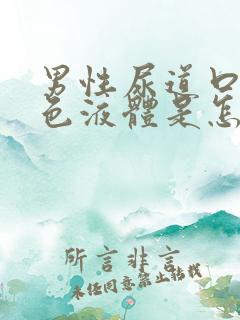 男性尿道口
色液體是怎
所言非言
未任同意禁止转载